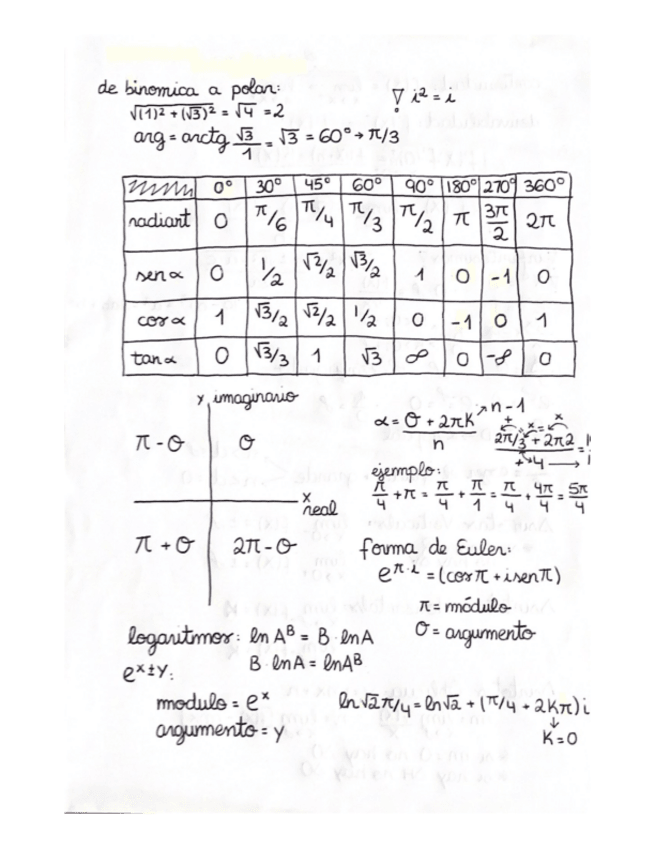 de binomica a polar:
√(1)² + (√3)² = √4 = 2
∇ i² = i
arg = arctg √3/1 = √3 = 60° → π/3
0° 30° 45° 60° 90° 180° 270° 360°
radiant 0 π/6 π/4 π/3 π/2 π 3π/2 2π
sen α 0 1/2 √2/2 √3/2 1 0 -1 0
cos α 1 √3/2 √2/2 1/2 0 -1 0 1
tan α 0 √3/3 1 √3 ∞ 0 -∞ 0
y imaginario
π - O O
x real
π + O 2π - O
α = O + 2πK / n → n - 1
2π/3 + 2π2
+ 4
ejemplo:
π/4 + π = π/4 + π/1 = π/4 + 4π/4 = 5π/4
forma de Euler:
e^π·i = (cos π + i sen π)
π = módulo
O = argumento
logaritmos: ln A^B = B · ln A
B · ln A = ln A^B
e^x±y:
modulo = e^x
argumento = y
ln √2 π/4 = ln √2 + (π/4 + 2Kπ) i
↓
K = 0